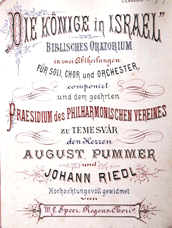 "DIE KÖNIGE in ISRAEL"
BIBLISCHES ORATORIUM
in zwei Abtheilungen
FÜR SOLI, CHOR, und ORCHESTER,
componirt
und dem geehrten
PRAESIDIUM DES PHILHARMONISCHEN VEREINES
ZU TEMESVÁR
den Herren
AUGUST PUMMER
und
JOHANN RIEDL
Hochachtungsvoll gewidmet
von
Speer, Regens Chori